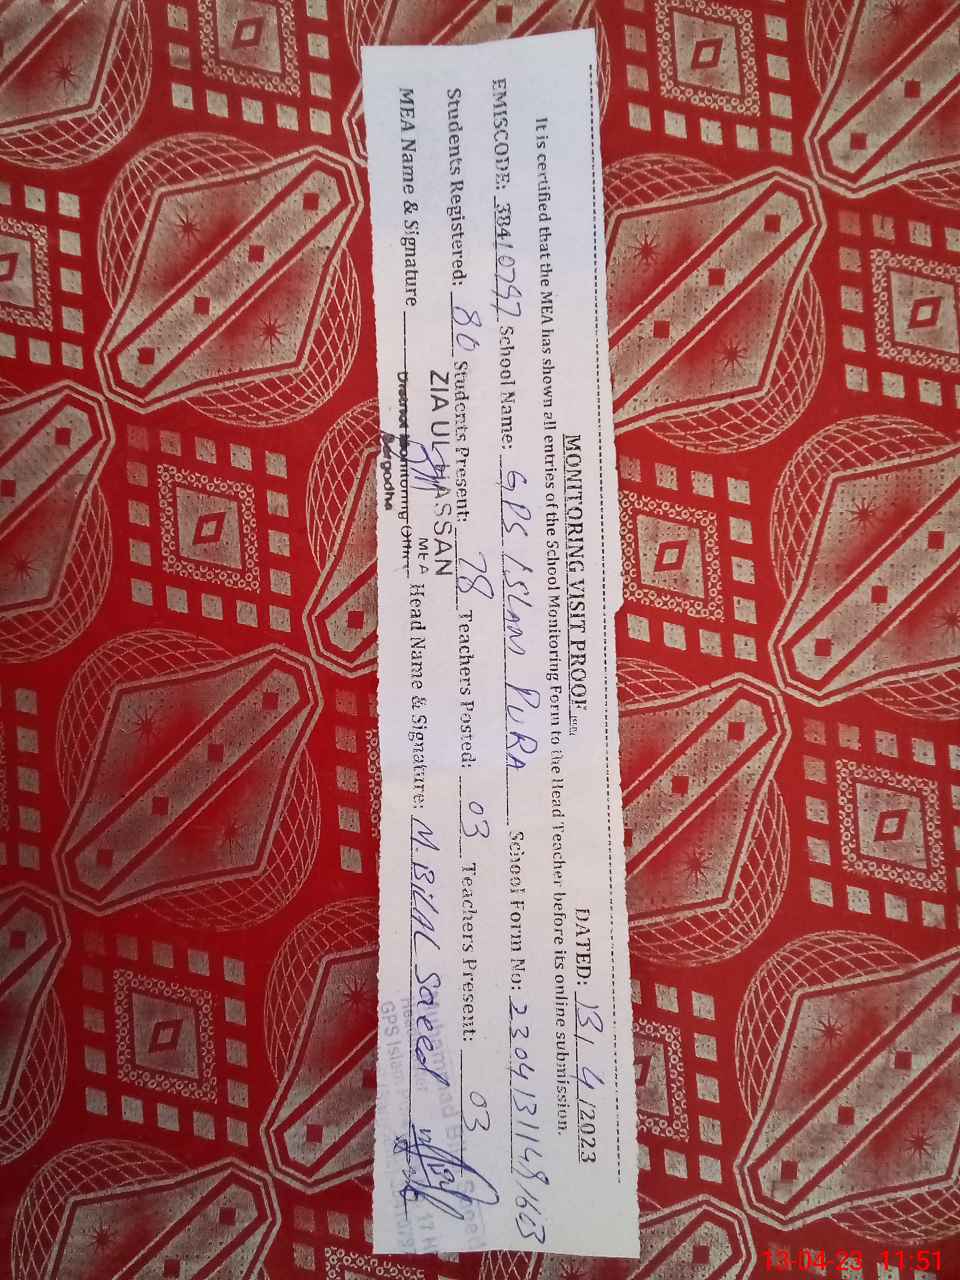 MONITORING VISIT PROOF
DATED: 13/4/2023
It is certified that the MEA has shown all entries of the School Monitoring Form to the Head Teacher before its online submission.
EMISCODE: 38410797 School Name: GPS ISLAM PURA School Form No: 23041311491603
Students Registered: 80 Students Present: 78 Teachers Posted: 03 Teachers Present: 03
MEA Name & Signature Head Name & Signature: M. BILAL Saeed
ZIA UL HASSAN
MEA
District Monitoring Officer
Sargodha
Muhammad
GPS Islam
13-04-23 11:51